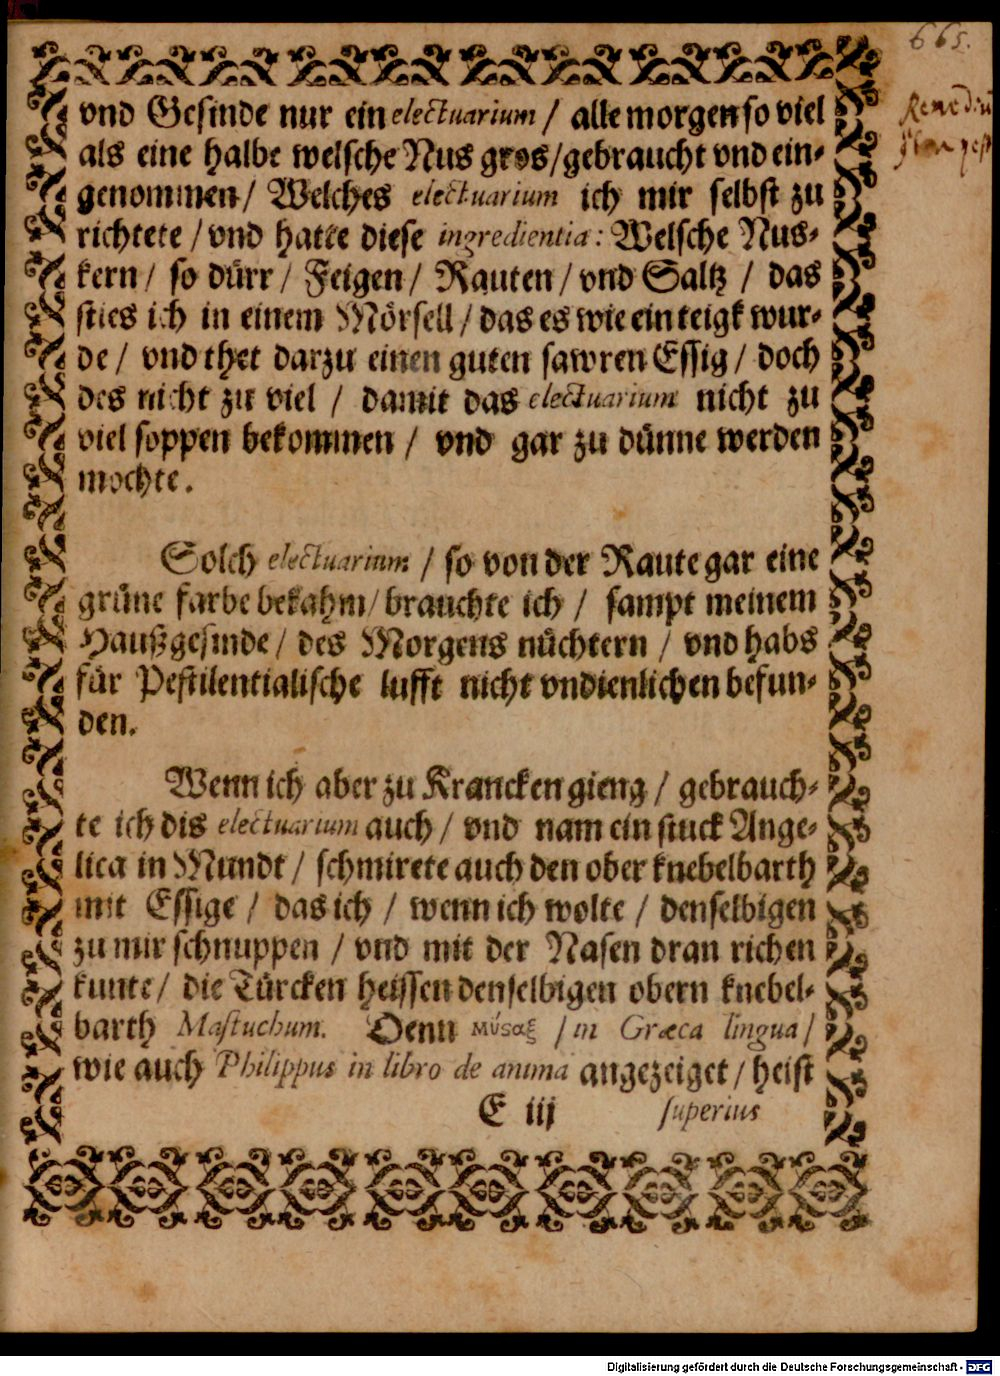 665.
vnd Gesinde nur ein electuarium / alle morgen so viel
als eine halbe welsche Nus gros/gebraucht vnd ein-
genommen/ Welches electuarium ich mir selbst zu
richtete / vnd hatte diese ingredientia: Welsche Nus-
kern / so dürr / Feigen / Rauten / vnd Saltz / das
sties ich in einem Mörsell / das es wie ein teigk wur-
de / vnd thet darzu einen guten sawren Essig / doch
des nicht zu viel / damit das electuarium nicht zu
viel soppen bekommen / vnd gar zu dünne werden
mochte.
Solch electuarium / so von der Raute gar eine
grüne farbe bekahm/ brauchte ich / sampt meinem
Haußgesinde / des Morgens nüchtern / vnd habs
für Pestilentialische lufft nicht vndienlichen befun-
den.
Wenn ich aber zu Krancken gieng / gebrauch-
te ich dis electuarium auch / vnd nam ein stuck Ange-
lica in Mundt / schmirete auch den ober knebelbarth
mit Essige / das ich / wenn ich wolte / denselbigen
zu mir schnuppen / vnd mit der Nasen dran richen
kunte / die Türcken heissen denselbigen obern knebel-
barth Mastuchum. Denn μύσαξ / in Græca lingua /
wie auch Philippus in libro de anima angezeiget / heist
E iij superius
Digitalisierung gefördert durch die Deutsche Forschungsgemeinschaft - DFG